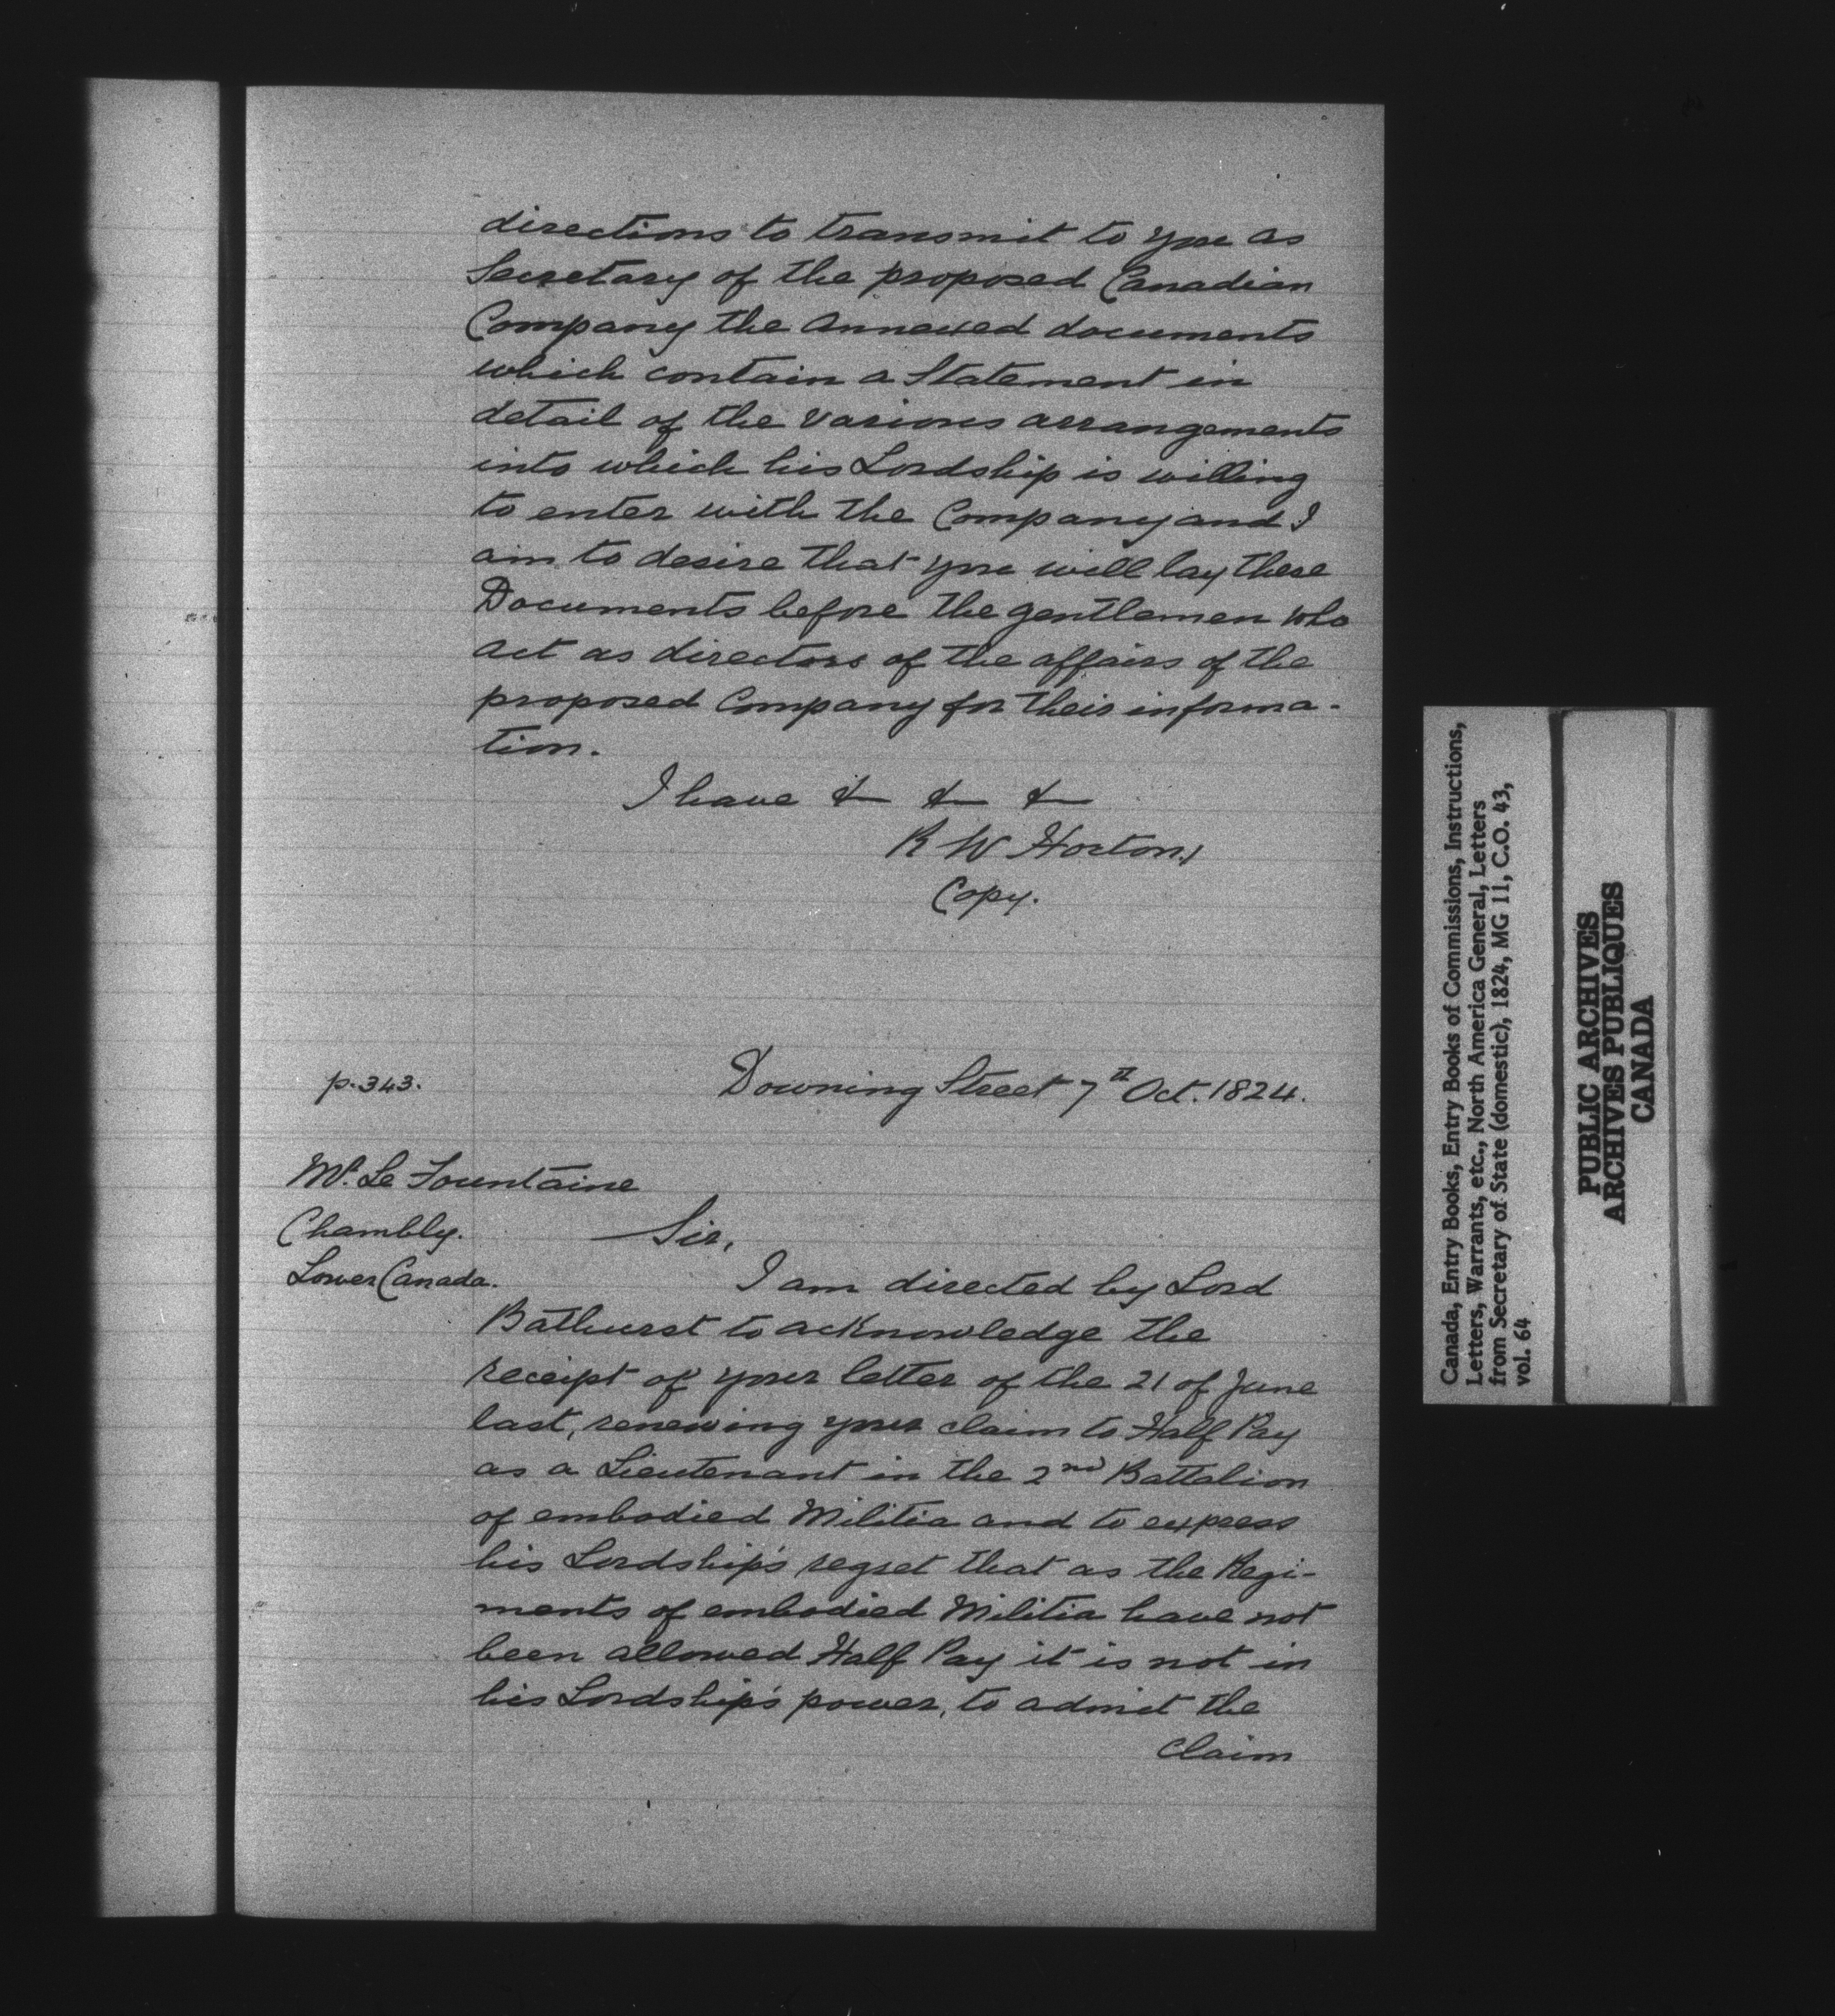 directions to transmit to you as
Secretary of the proposed Canadian
Company the Annexed documents
which contain a Statement in
detail of the various arrangements
into which his Lordship is willing
to enter with the Company and I
am to desire that you will lay these
Documents before the gentlemen who
act as directors of the affairs of the
proposed Company for their informa-
tion.
I have &c &c &c
R W Horton,
Copy.
p. 343.
Downing Street 7th Oct. 1824.
Mr. Le Fountaine
Chambly.
Lower Canada.
Sir,
I am directed by Lord
Bathurst to acknowledge the
receipt of your letter of the 21 of June
last, renewing your claim to Half Pay
as a Lieutenant in the 2nd Battalion
of embodied Militia and to express
his Lordship's regret that as the Regi-
ments of embodied Militia have not
been allowed Half Pay it is not in
his Lordship's power, to admit the
claim
Canada, Entry Books, Entry Books of Commissions, Instructions,
Letters, Warrants, etc., North America General, Letters
from Secretary of State (domestic), 1824, MG 11, C.O. 43,
vol. 64
PUBLIC ARCHIVES
ARCHIVES PUBLIQUES
CANADA